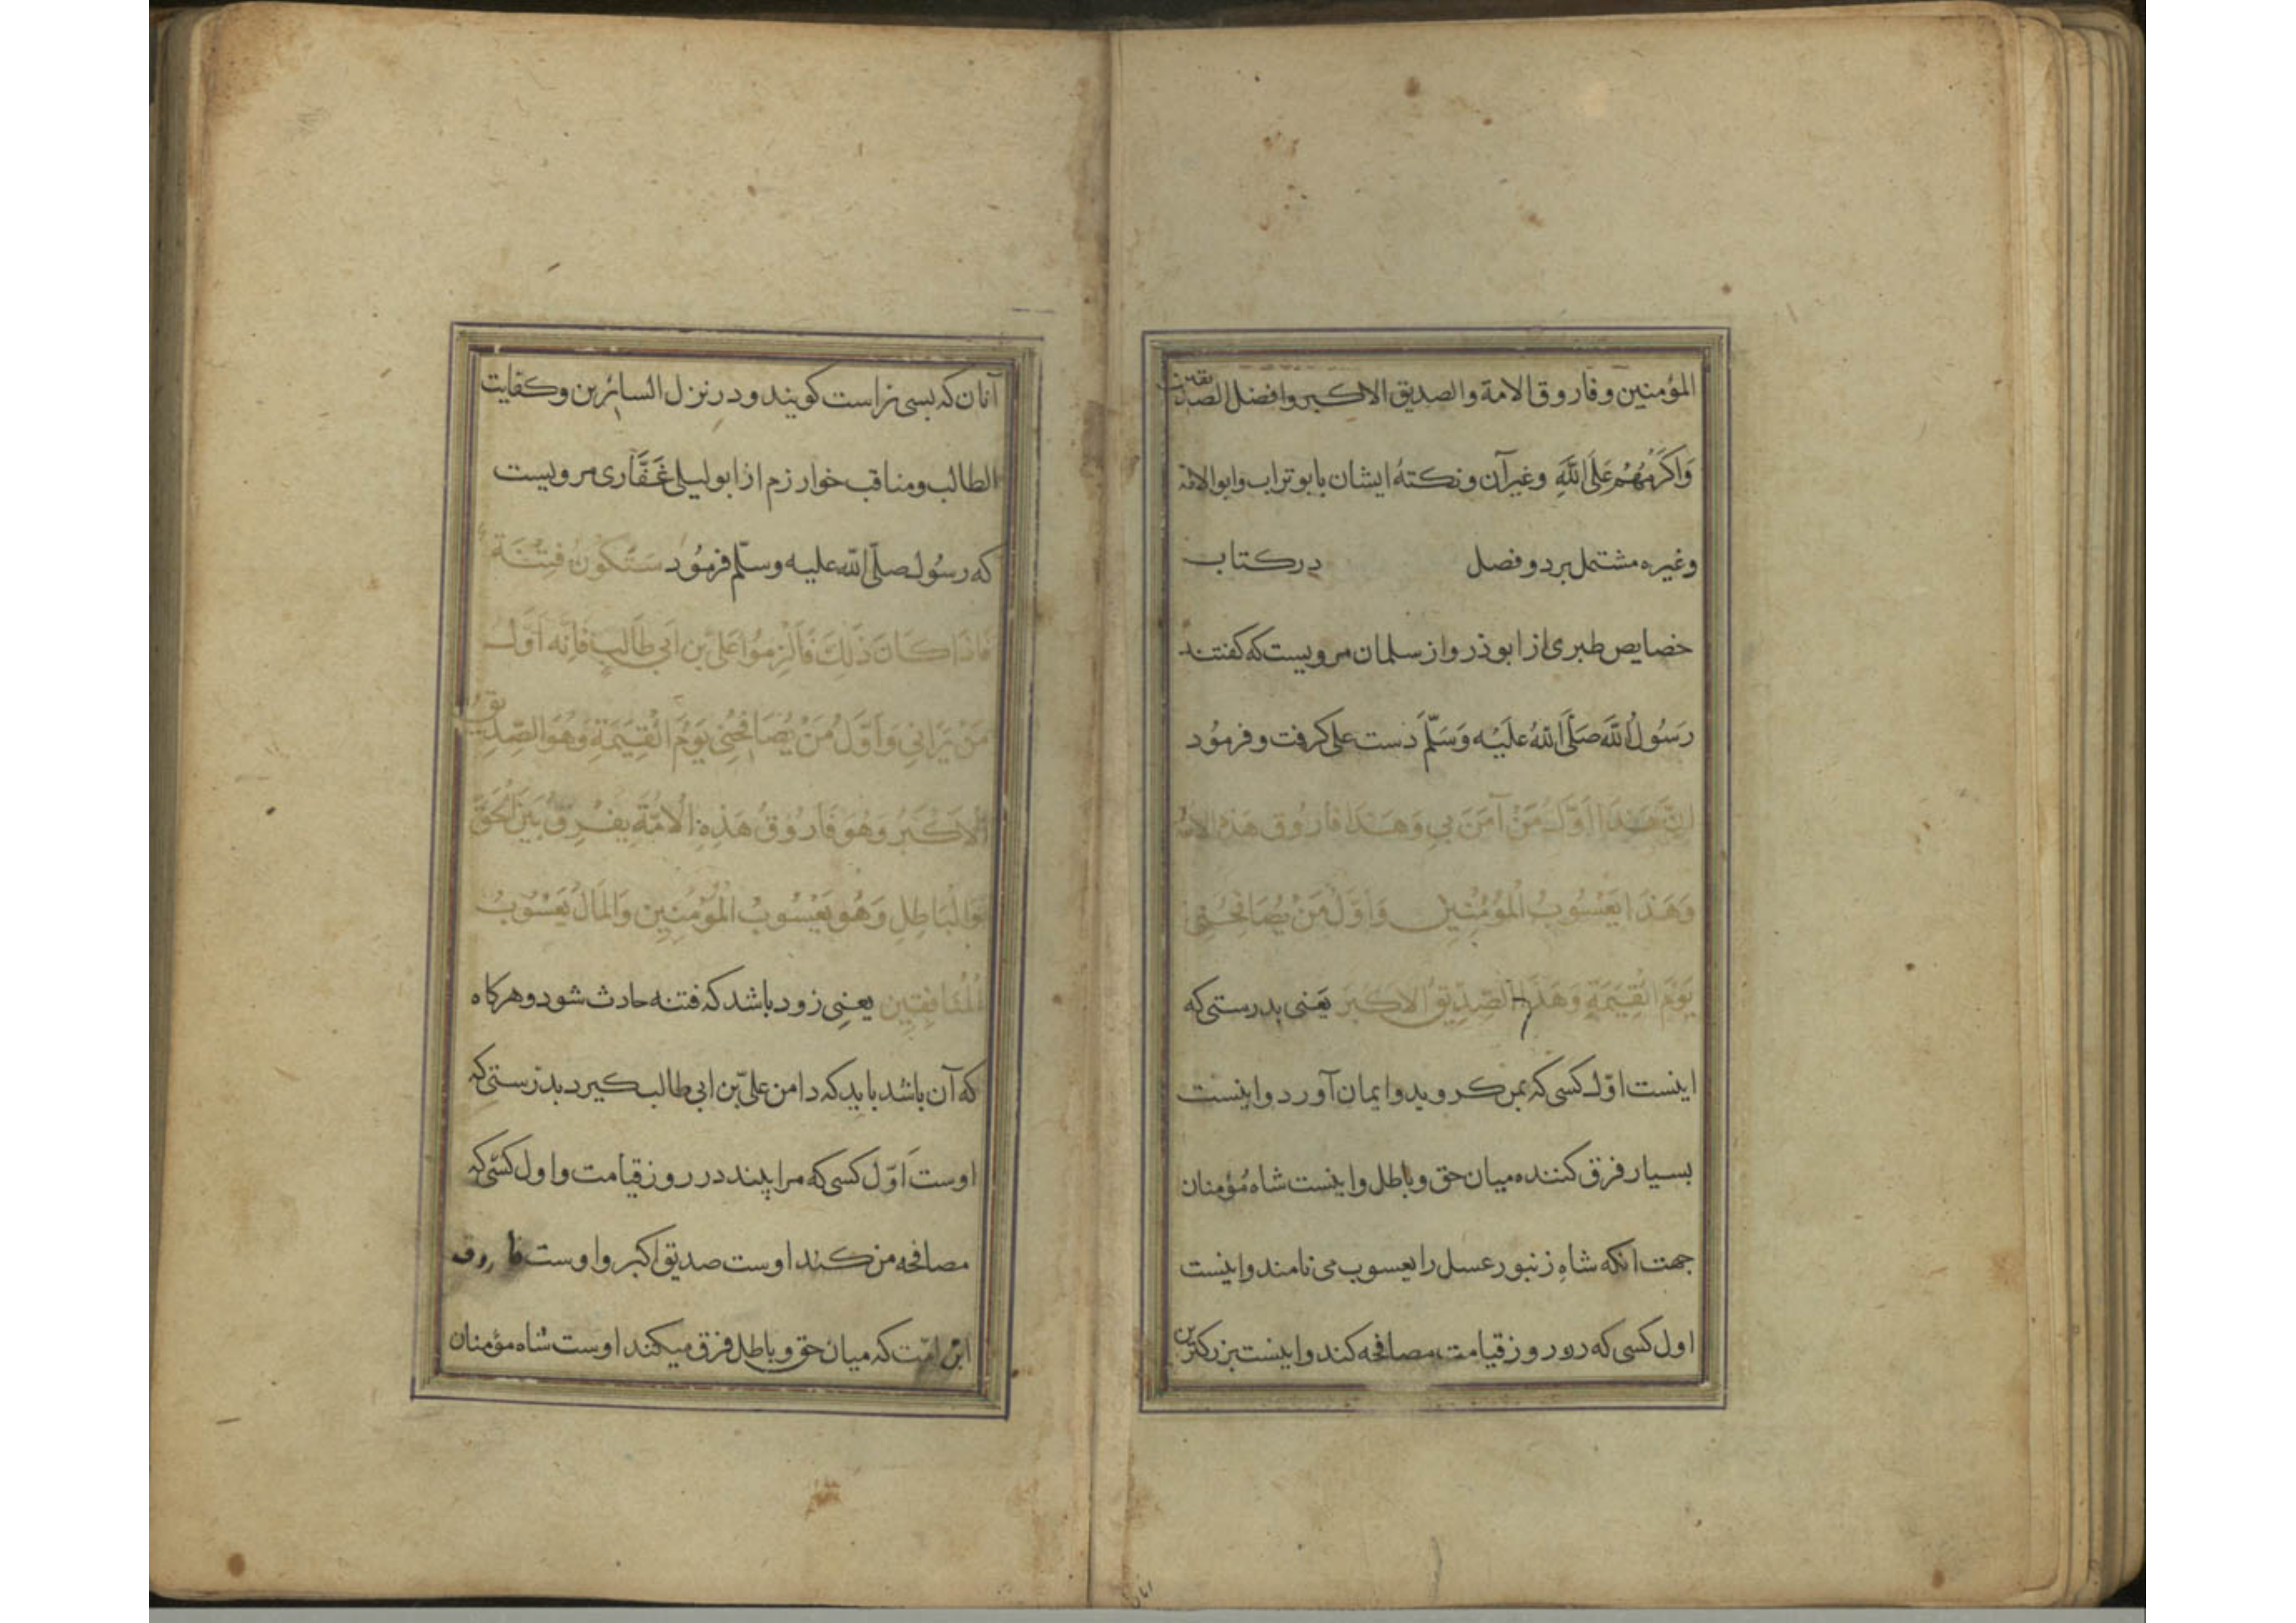 المؤمنین و فاروق الامة والصدیق الاکبر وافضل الصدیقین
وَاَکرَمُهُم عَلَی اللّٰهِ وغیر آن و نکتهٔ ایشان بابوتراب وابو الائمة
وغیره مشتمل بر دو فصل در کتاب
خصایص طبری از ابوذر و از سلمان مرویست که کفتند
رَسُولُ اللّٰه صَلَّی اللّٰهُ علَیْه وَسَلَّمَ دست علی کرفت و فرمُود
اِنَّ هَذَا اَوَّلُ مَنْ آمَنَ بِی وَهَذَا فَارُوق هَذِهِ الاُمّة
وَهَذَا یَعْسُوبُ الْمُؤمِنِین وَاَوَّلُ مَنْ یُصَافِحُنِی
یَوْمَ الْقِیٰمَةِ وَهَذَا الصِّدِّیقُ الاَکبَر یَعنی بدرستی که
اینست اوّل کسی که بمن کروید و ایمان آورد و اینست
بسیار فرق کننده میان حق و باطل و اینست شاه مُؤمنان
جهت انکه شاهِ زنبور عسل را یعسوب می نامند و اینست
اول کسی که در روز قیامت مصافحه کند و اینست بزرکترین
آنان که بسی راست کویند و در نزل السائرین و کفایت
الطالب و مناقب خوارزم از ابولیلی غَفَّاری مرویست
که رسُول صلّی اللّٰه علیه وسلّم فرمُود سَتَکُونُ فِتْنَة
فَاِذَا کَانَ ذَلِكَ فَالْزِمُوا عَلیّ بن اَبی طَالِبٍ فَاِنَّه اَوَّل
مَنْ یَرَانِی وَاَوَّلُ مَنْ یُصَافِحُنِی یَوْمَ الْقِیٰمَةِ وَهُوَ الصِّدِّیقُ
الْاَکْبَرُ وَهُوَ فَارُوقُ هَذِهِ الْاُمَّةِ یفْرِقُ بَیْنَ الْحَقِّ
وَالْبَاطِلِ وَهُوَ یَعْسُوبُ الْمُؤْمِنِین وَالْمَالُ یَعْسُوبُ
الْمُنَافِقِین یعنِی زود باشد که فتنه حادث شود و هرکاه
که آن باشد باید که دامن علیّ بن ابی طالب کیرد بدرستی که
اوست اَوّل کسی که مرا بیند در روز قیامت و اول کسی که
مصافحه من کند اوست صدیق اکبر و اوست فاروق
این امّت که میان حق و باطل فرق میکند اوست شاه مؤمنان